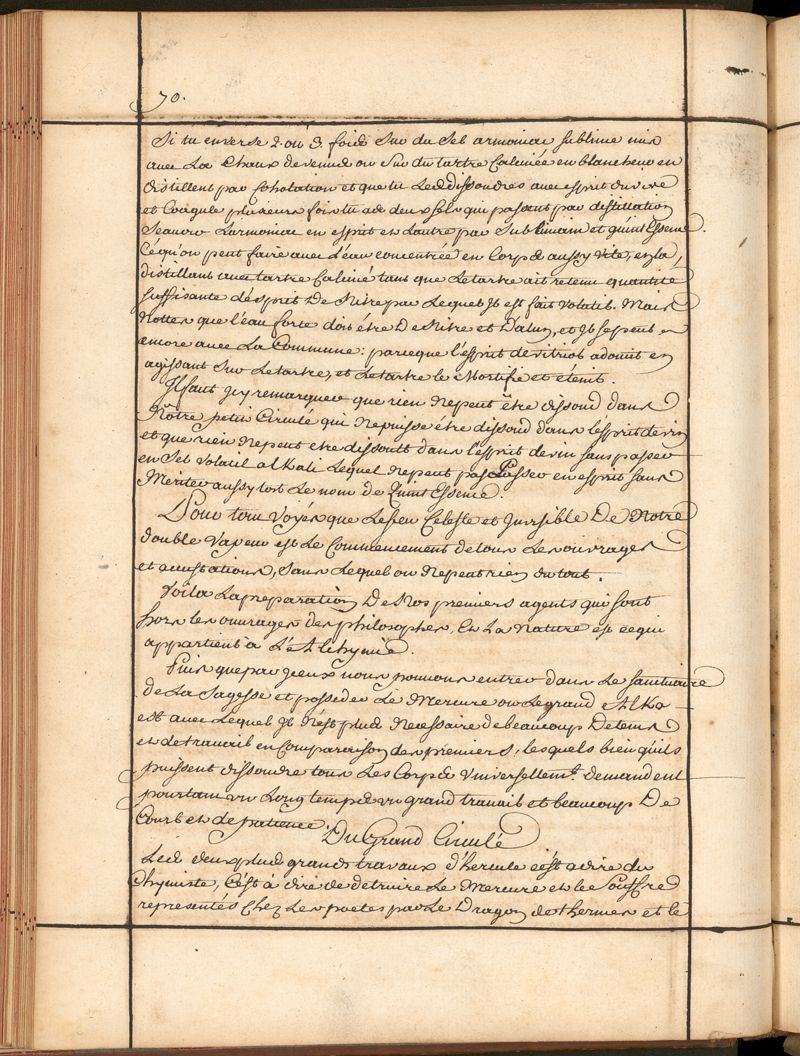 70.
Si tu enverse 2. ou 3. fois sur du Sel armoniac sublimé mis
avec La Chaux devenue ou sur du tartre Calcinée en blancheur en
distillent par Cohobation et que tu Les dissoudres avec esprit de vie
et Coagule plusieurs fois tu as deux sels qui passent par distillation
scavoir Larmoniac en esprit et Lautre par Sublimation et quint Essence.
Cequ'on peut faire avec L'eau concentrée en Corps aussy vite, en la
distillant avec tartre Calciné tant que Letartre ait retenu quantité
suffisante désprit De Nitre par Lequel Jl est fait volatil. Mais
Nottes que l'eau forte doit étre De Nitre et D'alun, et Jl se peut
encore avec La Commune: parceque l'esprit de vitriol adoucit en
agissant sur Letartre, et Letartre le Mortifie et éteint.
Jl faut Jcy remarquer que rien Nepeut être dissoud dans
Nôtre petit Circulé qui Nepuisse étre dissoud dans lesprit de vin
et que rien Nepeut etre dissoutt dans l'esprit de vin sans passer
en Sel volatil alKali Lequel Nepeut pas Passer en esprit sans
Meriter aussy tost Le nom de Quint Essence.
Vous voyés que Lefeu Celeste et Jnvisible De Notre
double vapeur est Le Commencement de tous Les ouvrages
et, sans Lequel on Nepeut rien du tout.
Voila Lapreparation De Nos premiers agents qui sont
hors les ouvrages des philosophes, Et La Nature est cequi
appartient à L'Alchymie.
Puis que par Jceux nous pouvons entrer dans Le sanctuaire
de La Sagesse et posseder Le Mercure ou Legrand AlKa-
est avec Lequel Jl N'est plus Necessaire de beaucoup De tems
et de travail en Comparaison des premiers, lesquels bien qu'ils
puissent dissoudre tous Les Corps universellemt. demandent
pourtant un Long temps un grand travail et beaucoup De
Courb et de patience.
Du Grand Circulé
Les deux plus grands travaux d'hercule c'est adire du
Chymiste, C'est à dire de detruire Le Mercure et le Souffre
representés Chez Les poetes par Le Dragon de thermes et le